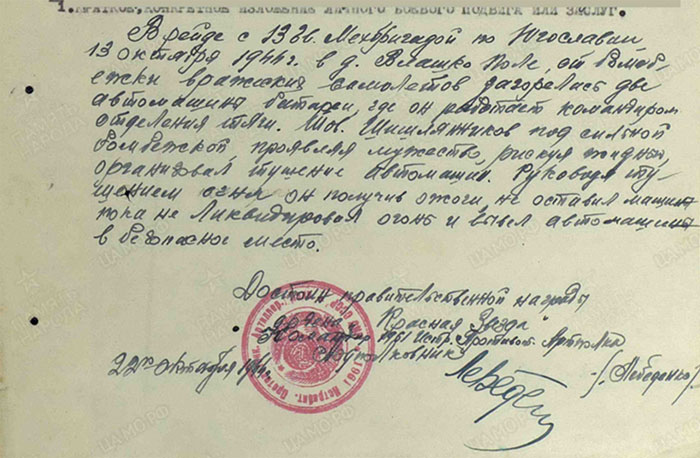 1. КРАТКОЕ, КОНКРЕТНОЕ ИЗЛОЖЕНИЕ ЛИЧНОГО БОЕВОГО ПОДВИГА ИЛИ ЗАСЛУГ.
В рейде с 13 Гв. Мехбригадой по Югославии
13 октября 1944 г. в д. Влашко Поле, от бомбе-
жки вражеских самолетов загорелась две
автомашины батареи, где он работает командиром
отделения тяги. Тов. Шишлянников под сильной
бомбежкой проявляя мужество, рискуя жизнью,
организовал тушение автомашин. Руководя ту-
щением огня он получив ожоги, не оставил машин
пока не ликвидировал огонь и вывел автомашины
в безопасное место.
Достоин правительственной награды
ордена "Красная Звезда"
Командир 1961 Истр. Противот. Артполка
Подполковник
22го октября 1944
(Лебеденко)
ЦАМО РФ